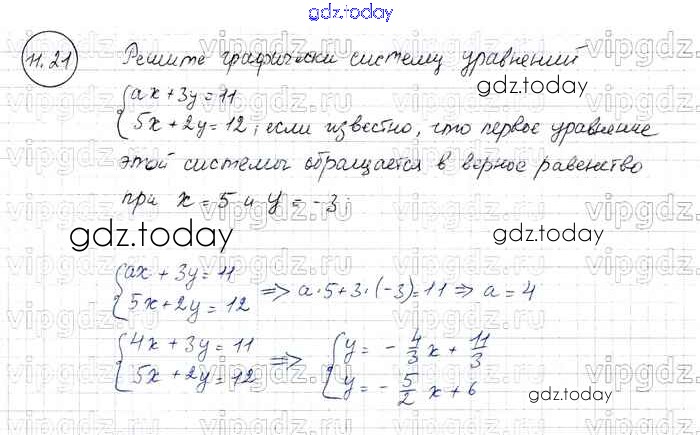 gdz.today
11.21 Решите графически систему уравнений
gdz.today
{ax + 3y = 11
{5x + 2y = 12, если известно, что первое уравнение
этой системы обращается в верное равенство
при x = 5 и y = -3
gdz.today gdz.today
{ax + 3y = 11
{5x + 2y = 12 => a·5+3·(-3)=11 => a = 4
{4x + 3y = 11
{5x + 2y = 12 => {y = -4/3 x + 11/3
{y = -5/2 x + 6
gdz.today